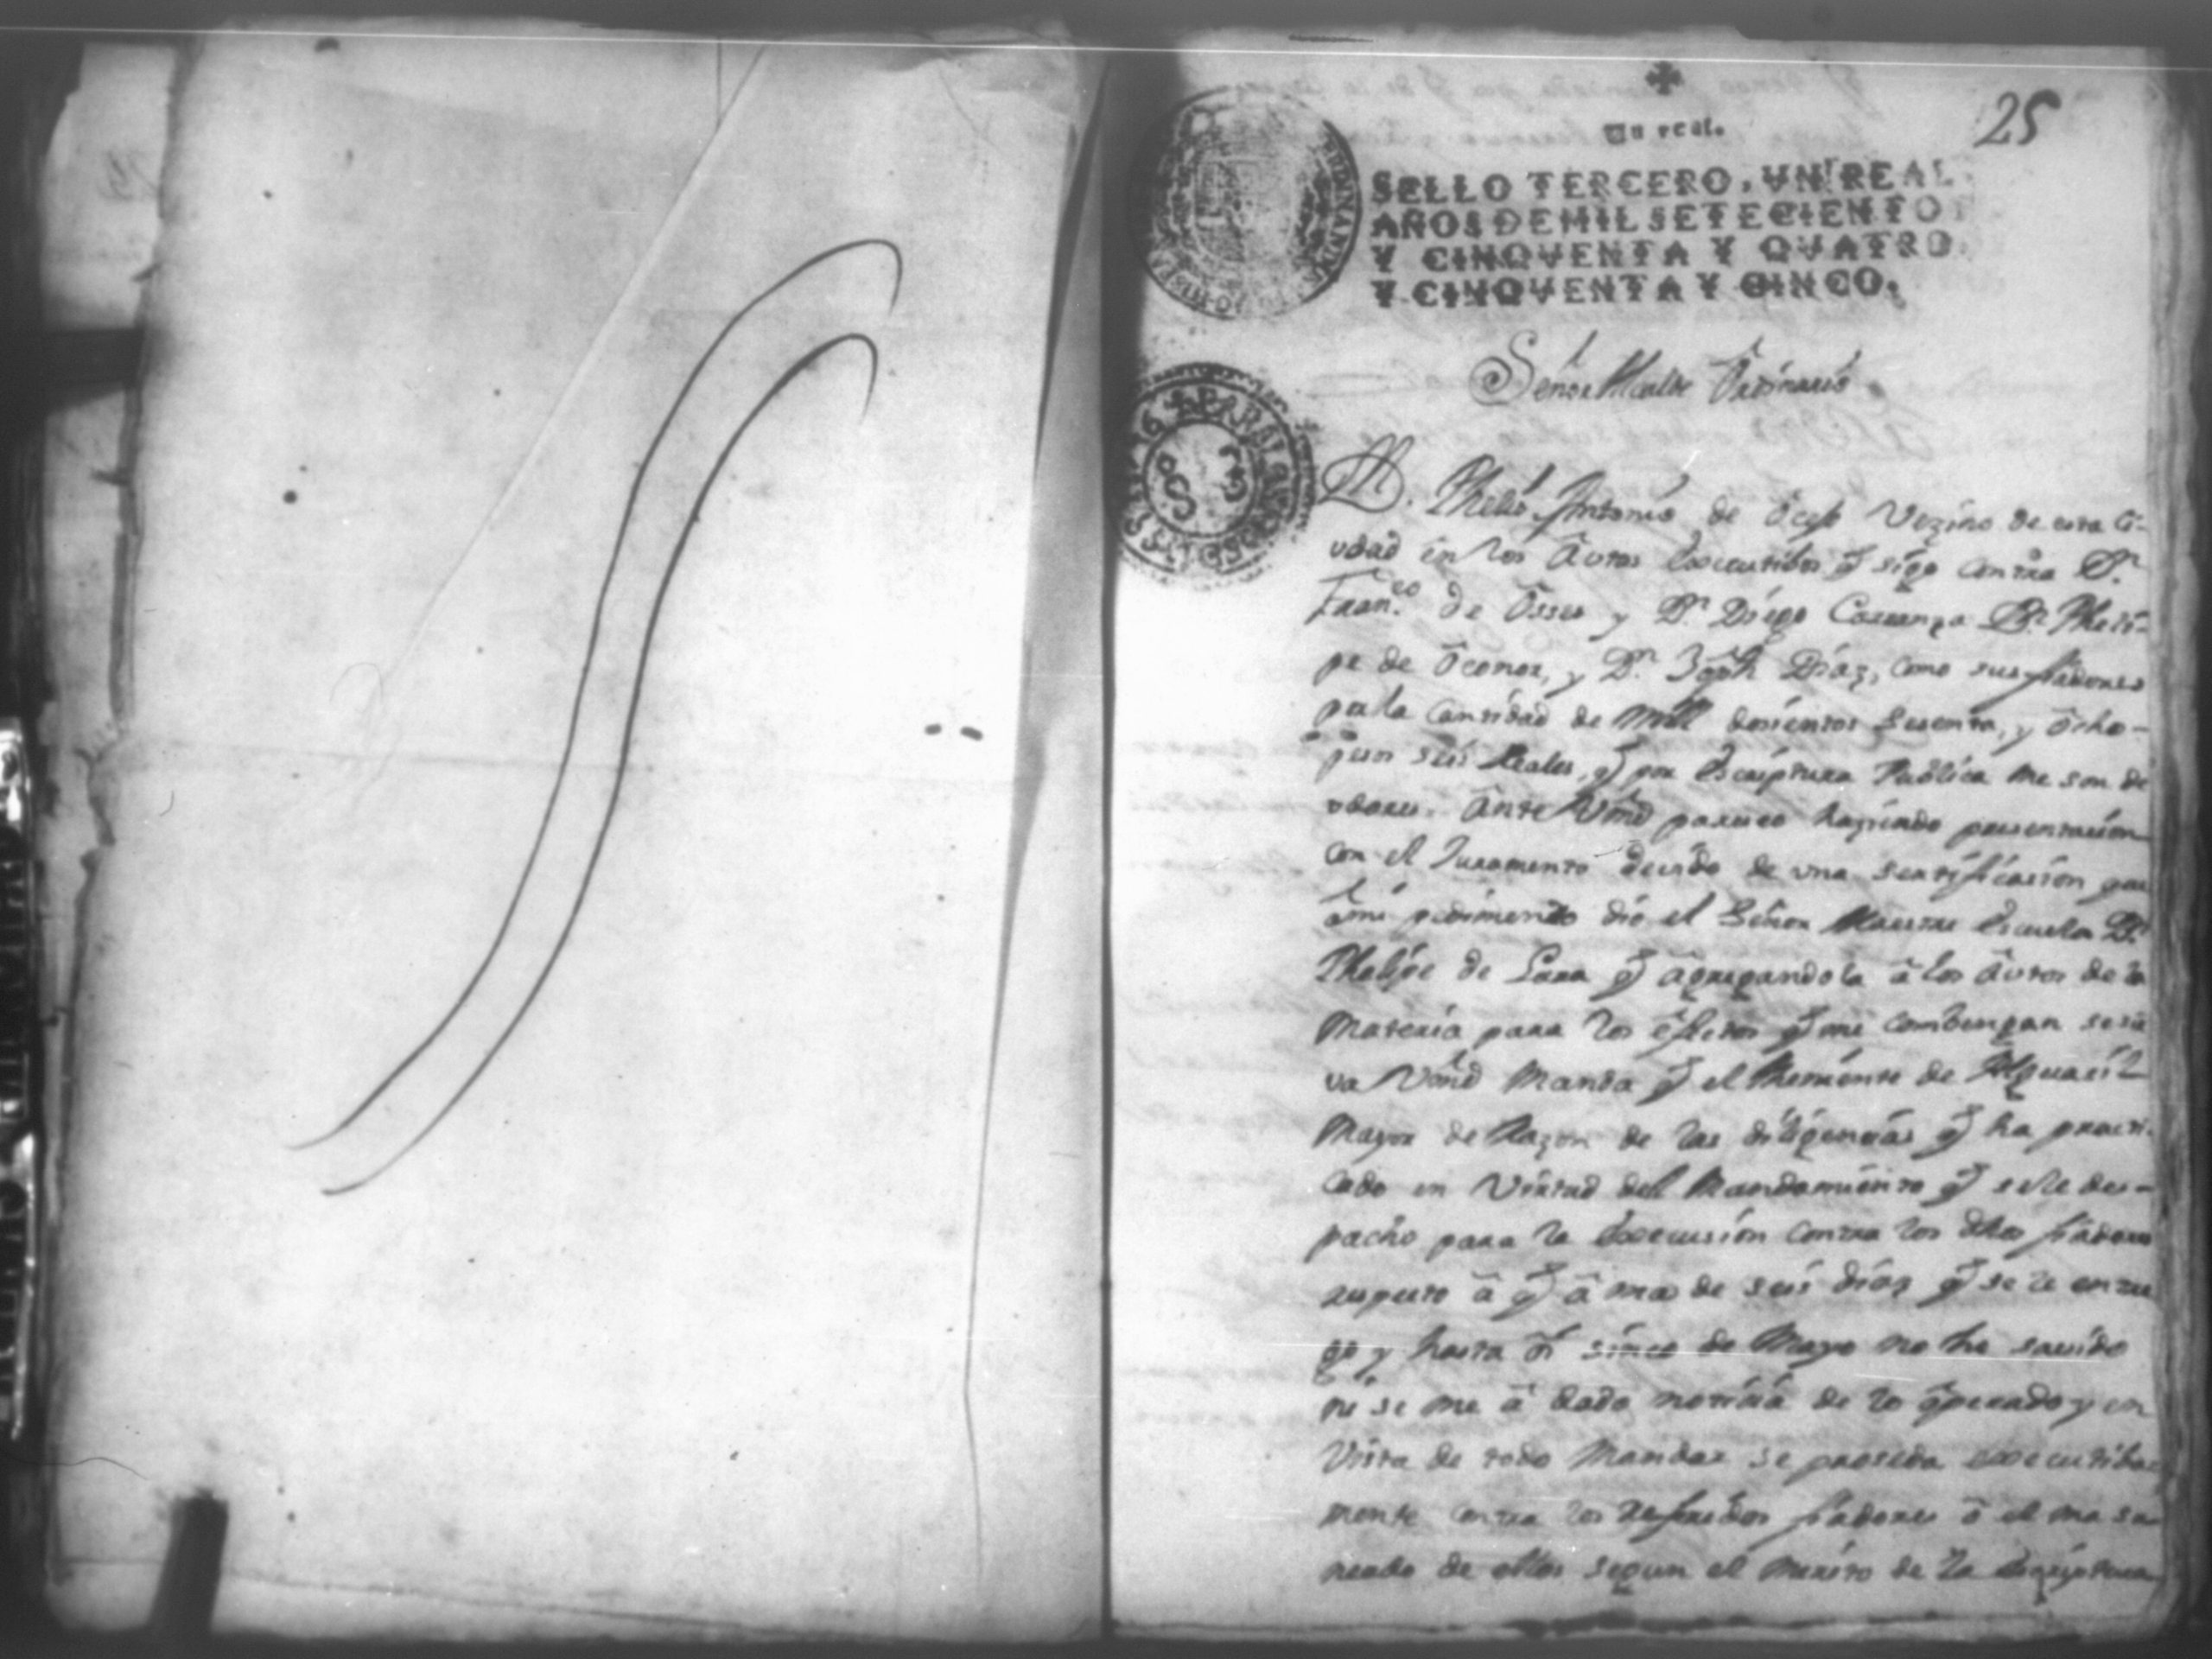 25
Un real.
SELLO TERCERO, VN REAL
AÑOS DE MIL SETECIENTO
Y CINQVENTA Y QVATRO
Y CINQVENTA Y CINCO.
Señor Alcalde Ordinario
Dn. Phelis Antonio de Vezino de esta Ci-
udad en los Autos Executibos q̃ sigo contra Dn.
Franco. de Osseo y Dn. Diego Carranza Dn. Pheli-
pe de Oconor, y Dn. Joph Diaz, como sus fiadores
por la cantidad de Mill dosientos sesenta, y ocho-
pesos seis Reales, q̃ por Escriptura Publica me son de
udores. Ante Vmd paresco haziendo presentasion
con el Juramento devido de vna sertificasion que
a mi pedimento dio el Señor Maestre Escuela Dn.
Phelipe de Lara q̃ agregandola a los Autos de la
Materia para los efectos q̃ me combengan se sir
va Vmd Manda q̃ el Theniente de Alguasil
Mayor de Razon de las diligencias q̃ ha practi-
cado en Virtud del Mandamiento q̃ se le des-
pacho para la Execusion contra los dhos fiadores
respecto a q̃ a mas de seis dias q̃ se le entre
go y hasta oi sinco de Mayo no he savido
ni se me a dado noticia de lo operado y en
Vista de todo Mandar se proseda executiba
mente contra los referidos fiadores o el mas sa
neado de ellos segun el merito de la Escriptura